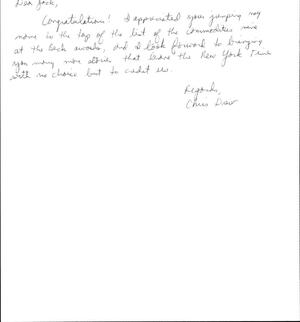 Dear Jack,
Congratulations! I appreciated your jumping my
name to the top of the list of the commodities
at the awards, and I look forward to bringing
you many more stories that leave the New York Times
with no choice but to credit us.
Regards,
Chris